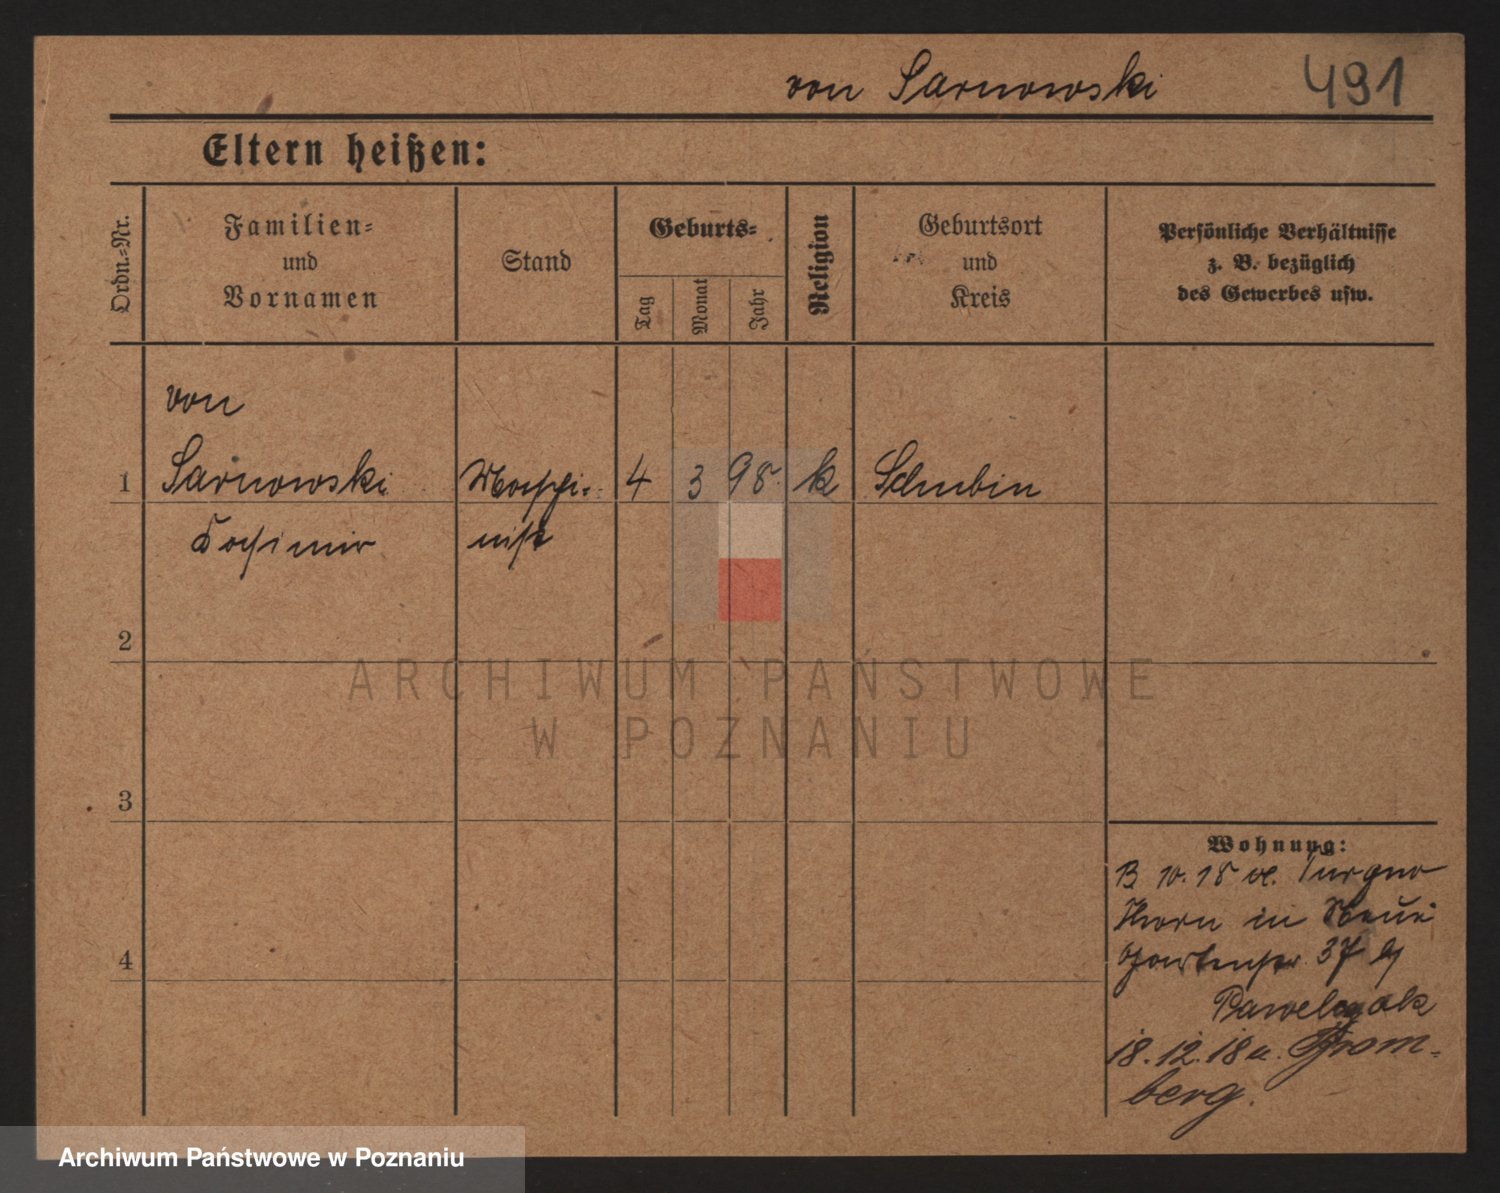 von Sarnowski 491
Eltern heißen:
Ordn.-Nr.
Familien-
und
Vornamen
Stand
Geburts-
Tag
Monat
Jahr
Religion
Geburtsort
und
Kreis
Persönliche Verhältnisse
z. B. bezüglich
des Gewerbes usw.
von
1 Sarnowski Maschi- 4 3 98 k Schubin
Kasimir nist
2
ARCHIWUM PAŃSTWOWE
W POZNANIU
3
Wohnung:
10. 18
Thorn in Neue
Gartenstr. 37 bj
4
Pawelczak
18. 12. 18 a. Brom-
berg.
Archiwum Państwowe w Poznaniu